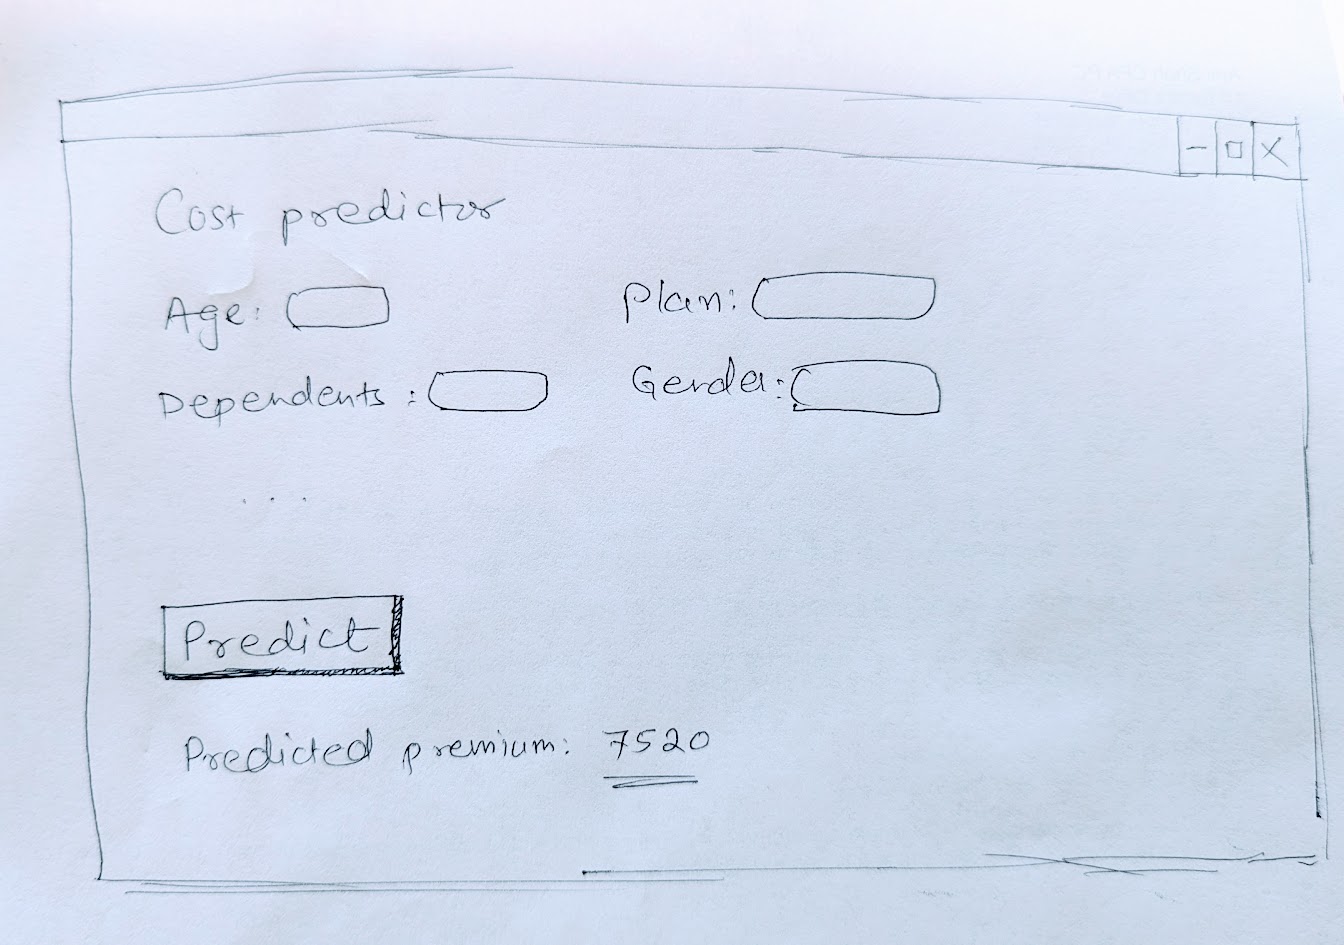 Cost predictor
Age: Plan:
Dependents : Gender:
...
Predict
Predicted premium: 7520